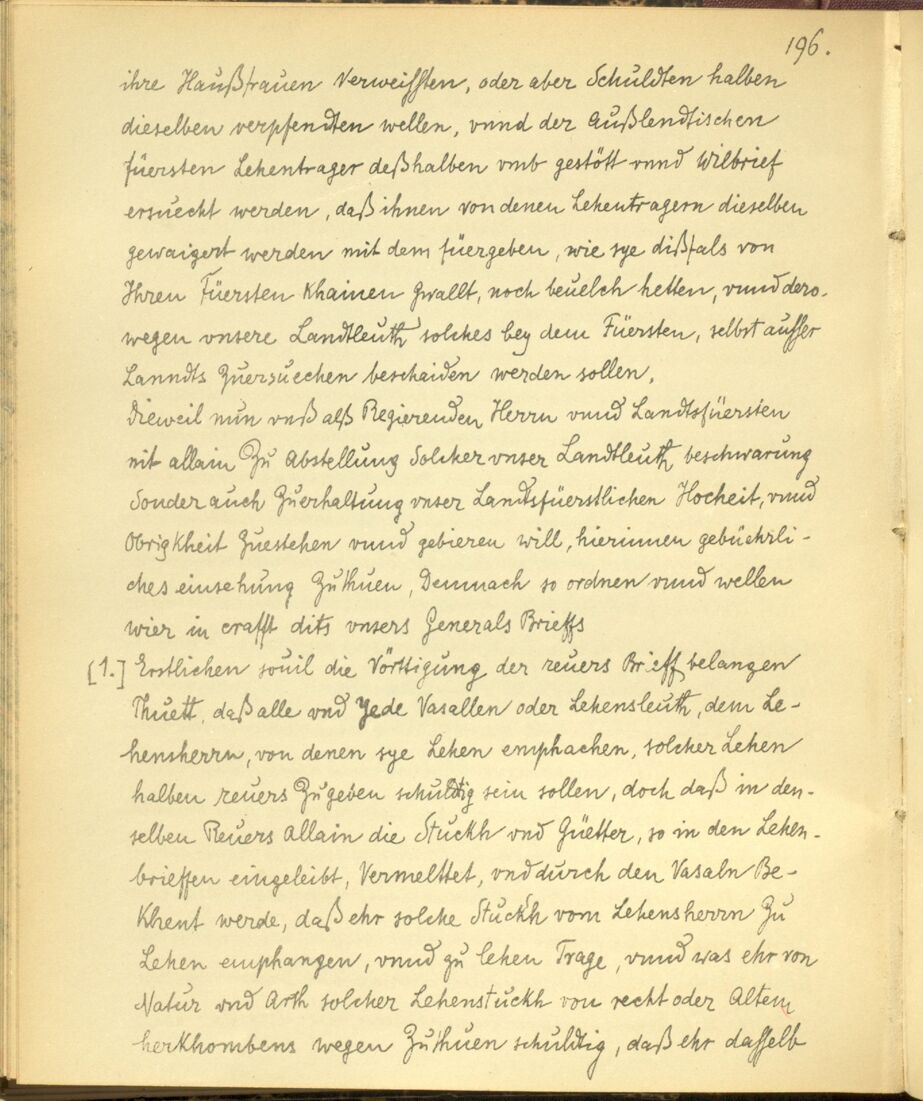 196.
ihre Haußfrauen Verweißten, oder aber Schuldten halben
dieselben verpfendten wellen, vnnd der Außlendtischen
füersten Lehentrager deßhalben vmb gestött vnnd Wilbrief
ersuecht werden, daß ihnen von denen Lehentragern dieselben
gewaigert werden mit dem füergeben, wie sye dißfals von
Ihren Füersten Khainen Gwallt, noch beuelch hetten, vnnd dero-
wegen vnsere Landtleuth solches bey dem Füersten, selbst ausser
Lanndts Zuersuechen beschaiden werden sollen.
Dieweil nun vnß alß Regierenden Herrn vnnd Landtsfüersten
nit allain Zu Abstellung Solcher vnser Landtleuth beschwarung
Sonder auch Zuerhaltung vnser Landtsfüerstlichen Hocheit, vnnd
Obrigkheit Zuestehen vnnd gebieren will, hierinnen gebüehrli-
ches einsehung Zu thuen, Demnach so ordnen vnnd wellen
wier in crafft dits vnsers Generals Brieffs
[1.] Erstlichen souil die Vörttigung der reuers Brieff belangen
Thuett, daß alle vnd Yede Vasallen oder Lehensleuth, dem Le-
hensherrn, von denen sye Lehen emphachen, solcher Lehen
halben reuers Zugeben schuldtig sein sollen, doch daß in den-
selben Reuers allain die Stuckh vnd Güetter, so in den Lehen-
brieffen eingeleibt, Vermelttet, vnd durch den Vasaln Be-
Khent werde, daß ehr solche Stuckh vom Lehensherrn Zu
Lehen emphangen, vnnd zu lehen Trage, vnnd was ehr von
Natur vnd Arth solcher Lehenstuckh von recht oder Altem
herkhombens wegen Zu thuen schuldtig, daß ehr dasselb